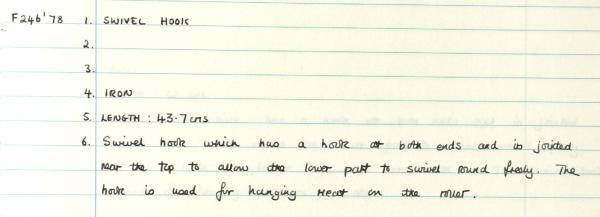 F246'78 1. SWIVEL HOOK
2.
3.
4. IRON
5. LENGTH : 43.7 cms
6. Swivel hook which has a hook at both ends and is jointed
near the top to allow the lower part to swivel round freely. The
hook is used for hanging meat on the roller.